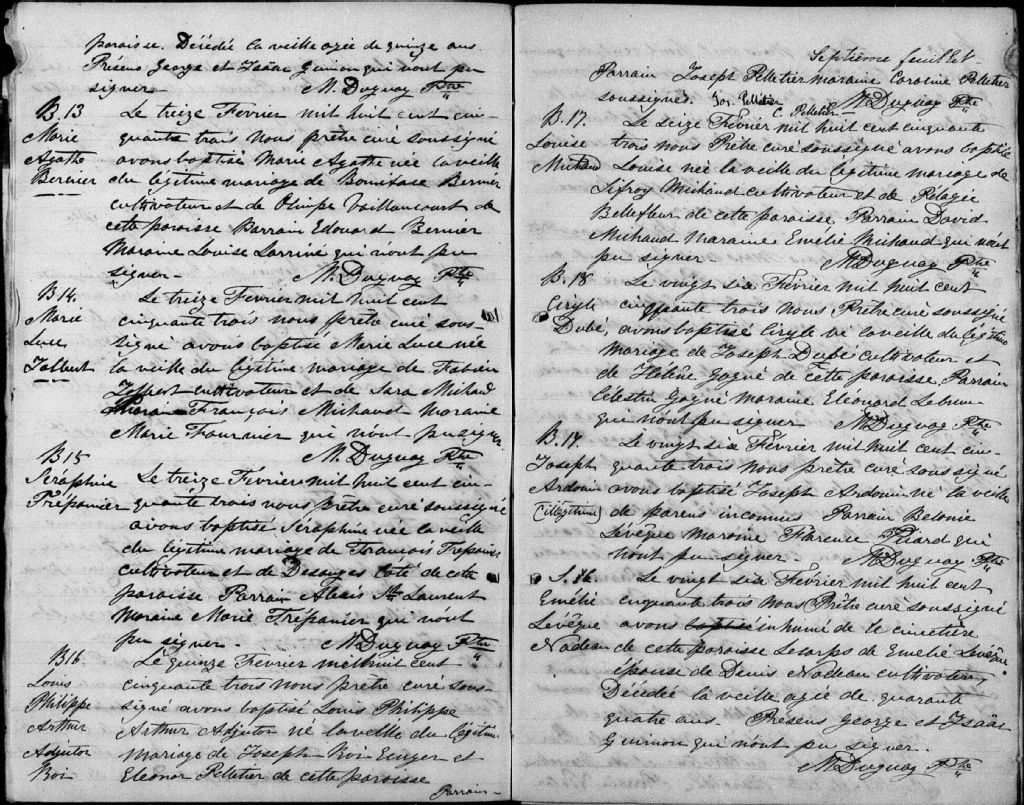 paroisse. Décédée la veille agée de quinze ans
Présens George et Isäac Guinion qui n'ont pu
signer - M. Duguay Ptre
B. 13
Marie
Agathe
Bernier
Le treize Fevrier mil huit cent cin-
quante trois nous prêtre curé soussigné
avons baptisé Marie Agathe née la veille
du légitime mariage de Boniface Bernier
cultivateur et de Olimpe Vaillancourt de
cette paroisse Parrain Edouard Bernier
Maraine Louise Larriné qui n'ont pu
signer - M. Duguay Ptre
B 14.
Marie
Luce
Jalbert
Le treize Fevrier mil huit cent
cinquante trois nous prêtre curé sous-
signé avons baptisé Marie Luce née
la veille du légitime mariage de Fabien
Jalbert cultivateur et de Sara Mihaud
Parain François Michaud Maraine
Marie Fournier qui n'ont pu signer
M. Duguay Ptre
B 15
Séraphine
Trépanier
Le treize Fevrier mil huit cent cin-
quante trois nous prêtre curé soussigné
avons baptisé Séraphine née la veille
du légitime mariage de Francois Trépanier
cultivateur et de Desanges Coté de cette
paroisse Parrain Alexis St Laurent
Maraine Marie Trépanier qui n'ont
pu signer - M. Duguay Ptre
B16.
Louis
Philippe
Arthur
Adjutor
Roi
Le quinze Fevrier mil huit cent
cinquante trois nous prêtre curé sous-
signé avons baptisé Louis Philippe
Arthur Adjutor né la veille du légitime
mariage de Joseph Roi et
Eleonor Pelletier de cette paroisse
Parrain -
Septième feuillet -
Parrain Joseph Pelletier maraine Caroline Pelletier
soussignés. Jos. Pelletier C. Pelletier M. Duguay Ptre
B. 17.
Louise
Michaud
Le seize Février mil huit cent cinquante
trois nous Prêtre curé soussigné avons baptisé
Louise née la veille du légitime mariage de
Sifroy Michaud cultivateur et de Pélagie
Bellefleur de cette paroisse Parrain David
Mihaud Maraine Emélie Michaud qui n'ont
pu signer M. Duguay Ptre
B. 18
Ciryle
Dubé,
Le vingt six Février mil huit cent
cinquante trois nous Prêtre curé soussigné
avons baptisé Ciryle né la veille du légitime
mariage de Joseph Dubé cultivateur et
de Hélène Gagné de cette paroisse, Parrain
Célestin Gagné maraine Eleonard Lebrun
qui n'ont pu signer M. Duguay Ptre
B. 19.
Joseph
Ardouin
(illégitime)
Le vingt six Février mil huit cent cin-
quante trois nous prêtre curé soussigné
avons baptisé Joseph Ardouin né la veille
de parens inconnus Parrain Belonie
Lévêque Maraine Florence Picard qui
n'ont pu signer M. Duguay Ptre
S. 16.
Emélie
Levêque
Nadeau
Le vingt six Février mil huit cent
cinquante trois nous Prêtre curé soussigné
avons baptisé inhumé de le cimetière
de cette paroisse le corps de Emelie Levêque
épouse de Denis Nadeau cultivateur,
Décédée la veille agée de quarante
quatre ans. Présens George et Isäac
Guinion qui n'ont pu signer.
M. Duguay Ptre